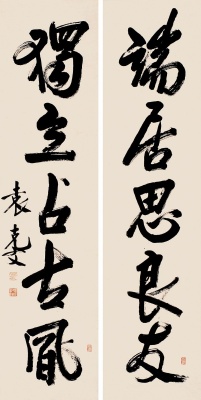 端居思良友
獨立占古風
袁克文